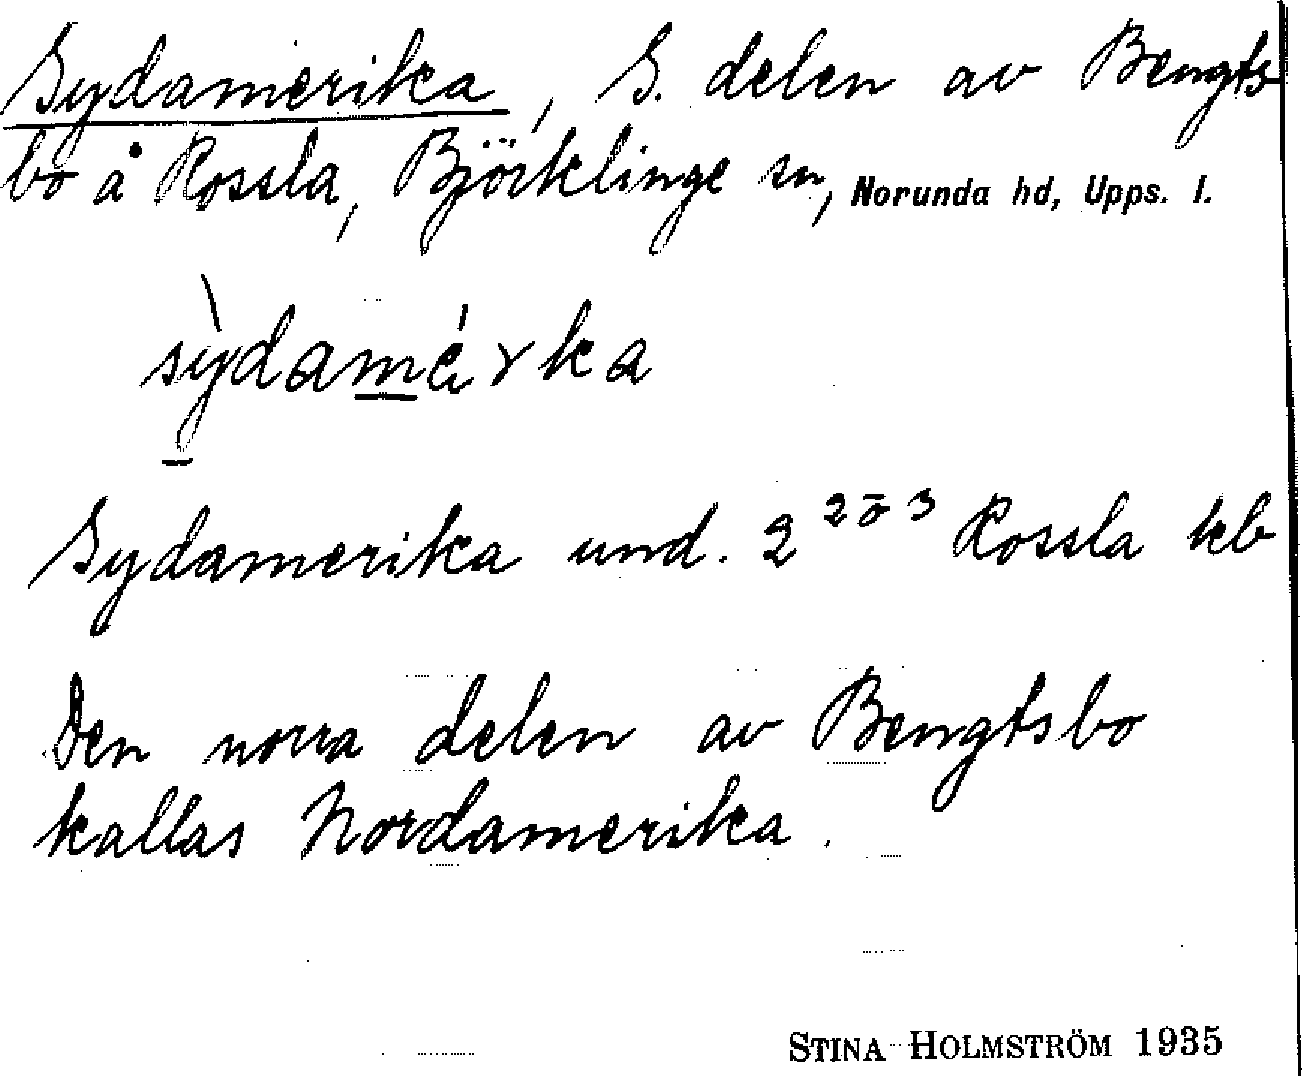 Sydamerika, S. delen av Bengts
bo å Rossla, Björklinge sn, Norunda hd, Upps. l.
sỳdamérka
Sydamerika und. 2 2 ō 3 Rossla kb
Den norra delen av Bengtsbo
kallas Nordamerika.
STINA HOLMSTRÖM 1935